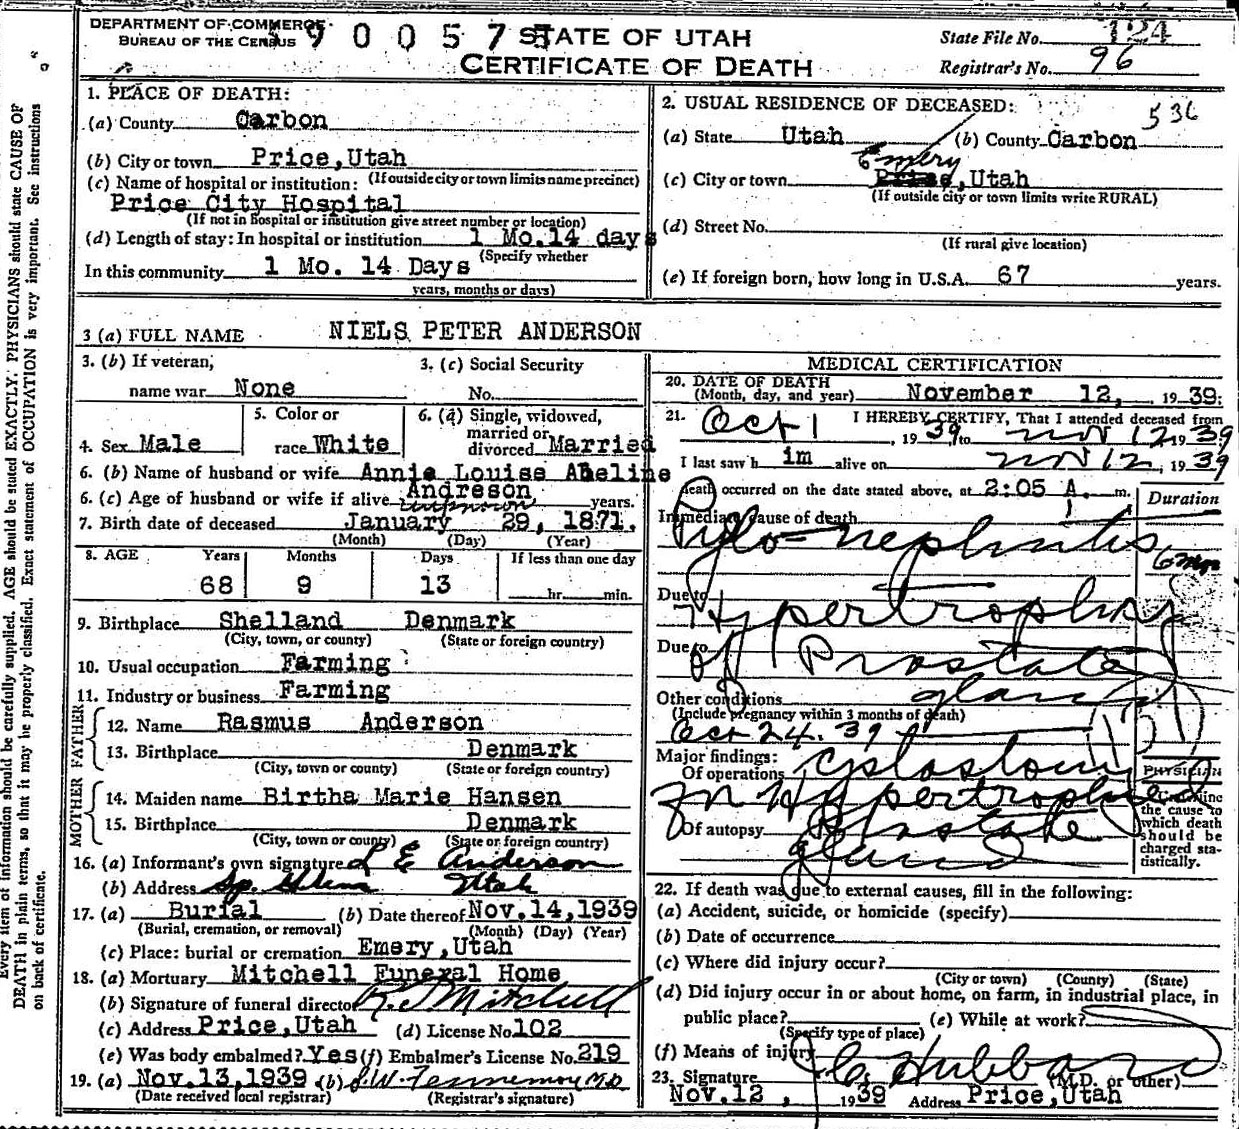 DEPARTMENT OF COMMERCE
BUREAU OF THE CENSUS
90057
STATE OF UTAH
CERTIFICATE OF DEATH
State File No. 124
Registrar's No. 96
1. PLACE OF DEATH:
(a) County Carbon
(b) City or town Price, Utah
(If outside city or town limits name precinct)
(c) Name of hospital or institution:
Price City Hospital
(If not in hospital or institution give street number or location)
(d) Length of stay: In hospital or institution 1 Mo. 14 days
(Specify whether
In this community 1 Mo. 14 Days
years, months or days)
2. USUAL RESIDENCE OF DECEASED:
536
(a) State Utah (b) County Carbon
Emery
(c) City or town Price, Utah
(If outside city or town limits write RURAL)
(d) Street No.
(If rural give location)
(e) If foreign born, how long in U.S.A. 67 years.
3 (a) FULL NAME NIELS PETER ANDERSON
3. (b) If veteran,
name war None
3. (c) Social Security
No.
4. Sex Male
5. Color or
race White
6. (a) Single, widowed,
married or
divorced Married
6. (b) Name of husband or wife Annie Louise Abeline
Andreson
6. (c) Age of husband or wife if alive unknown years.
7. Birth date of deceased January 29, 1871.
(Month) (Day) (Year)
8. AGE Years Months Days If less than one day
68 9 13 hr. min.
9. Birthplace Shelland Denmark
(City, town, or county) (State or foreign country)
10. Usual occupation Farming
11. Industry or business Farming
FATHER
12. Name Rasmus Anderson
13. Birthplace Denmark
(City, town or county) (State or foreign country)
MOTHER
14. Maiden name Birtha Marie Hansen
15. Birthplace Denmark
(City, town or county) (State or foreign country)
16. (a) Informant's own signature L E Anderson
(b) Address Sp. Glenn Utah
17. (a) Burial (b) Date thereof Nov. 14, 1939
(Burial, cremation, or removal) (Month) (Day) (Year)
(c) Place: burial or cremation Emery, Utah
18. (a) Mortuary Mitchell Funeral Home
(b) Signature of funeral director R. J. Mitchell
(c) Address Price, Utah (d) License No. 102
(e) Was body embalmed? Yes (f) Embalmer's License No. 219
19. (a) Nov. 13, 1939 (b) J. W. Tennemoy M.D.
(Date received local registrar) (Registrar's signature)
MEDICAL CERTIFICATION
20. DATE OF DEATH
(Month, day, and year) November 12, 1939.
21. I HEREBY CERTIFY, That I attended deceased from
Oct 1, 1939, to Nov 12, 1939
I last saw him alive on Nov 12, 1939
death occurred on the date stated above, at 2:05 A. m.
Duration
Immediate cause of death
Pylo-nephritis 6 mos
Due to
Hypertrophy
Due to
of Prostate
gland
Other conditions
(Include pregnancy within 3 months of death)
Oct 24. 39
137
Major findings:
Of operations Cystostomy
for Hypertrophied
Of autopsy Prostate
gland
PHYSICIAN
Underline
the cause to
which death
should be
charged sta-
tistically.
22. If death was due to external causes, fill in the following:
(a) Accident, suicide, or homicide (specify)
(b) Date of occurrence
(c) Where did injury occur?
(City or town) (County) (State)
(d) Did injury occur in or about home, on farm, in industrial place, in
public place? (e) While at work?
(Specify type of place)
(f) Means of injury
23. Signature J. C. Hubbard
(M.D. or other)
Nov. 12, 1939 Address Price, Utah
Every item of information should be carefully supplied. AGE should be stated EXACTLY. PHYSICIANS should state CAUSE OF
DEATH in plain terms, so that it may be properly classified. Exact statement of OCCUPATION is very important. See instructions
on back of certificate.